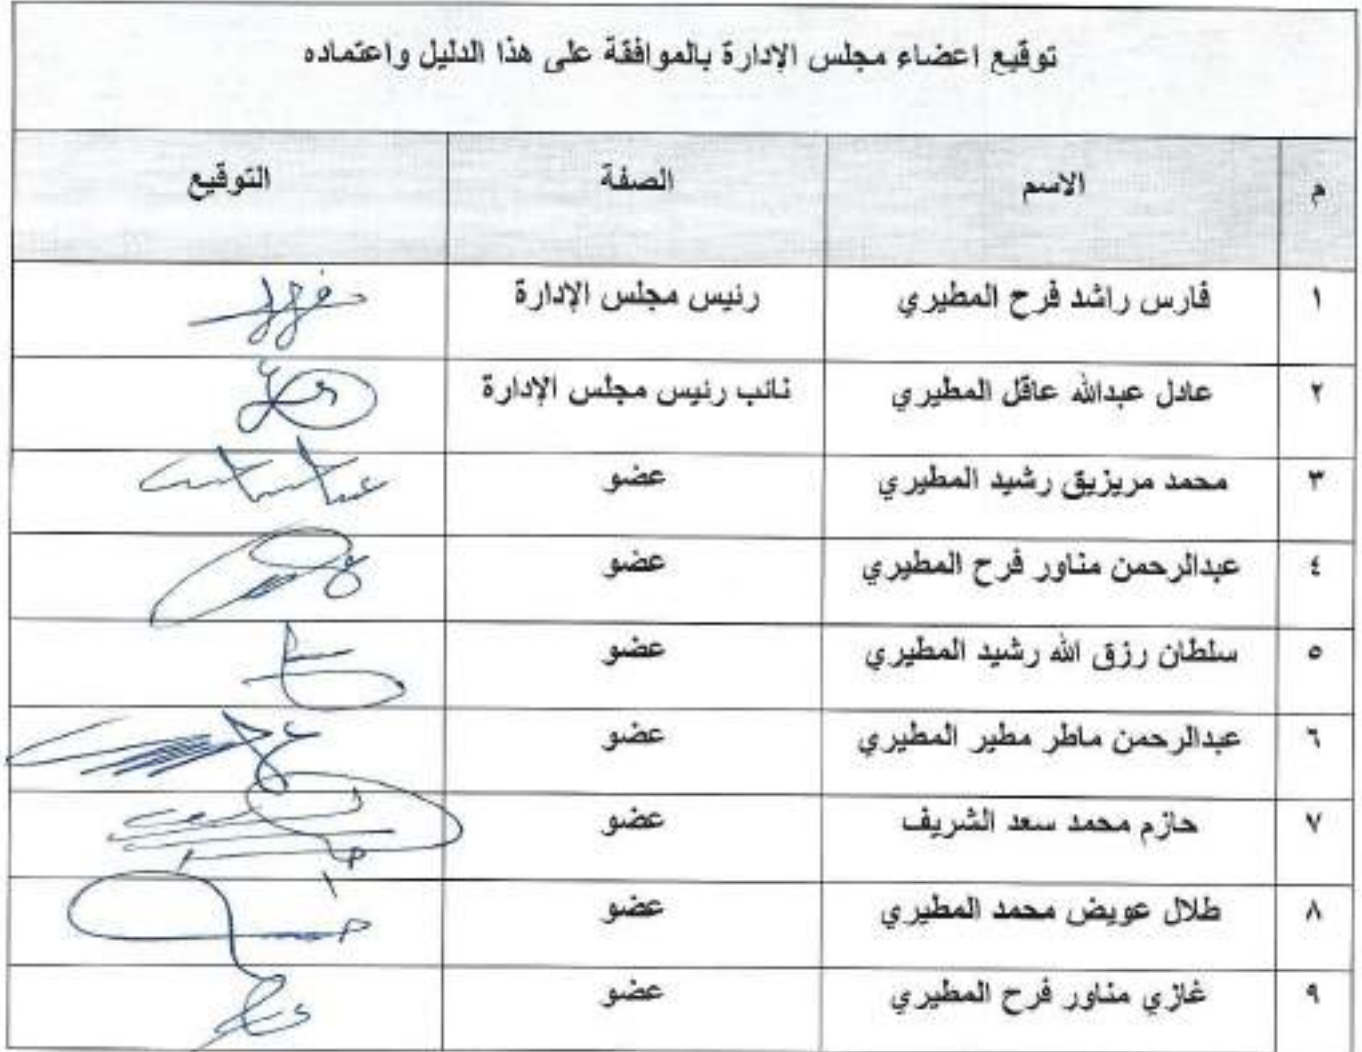 توقيع اعضاء مجلس الإدارة بالموافقة على هذا الدليل واعتماده
م الاسم الصفة التوقيع
١ فارس راشد فرح المطيري رئيس مجلس الإدارة
٢ عادل عبدالله عاقل المطيري نائب رئيس مجلس الإدارة
٣ محمد مريزيق رشيد المطيري عضو
٤ عبدالرحمن مناور فرح المطيري عضو
٥ سلطان رزق الله رشيد المطيري عضو
٦ عبدالرحمن ماطر مطير المطيري عضو
٧ حازم محمد سعد الشريف عضو
٨ طلال عويض محمد المطيري عضو
٩ غازي مناور فرح المطيري عضو